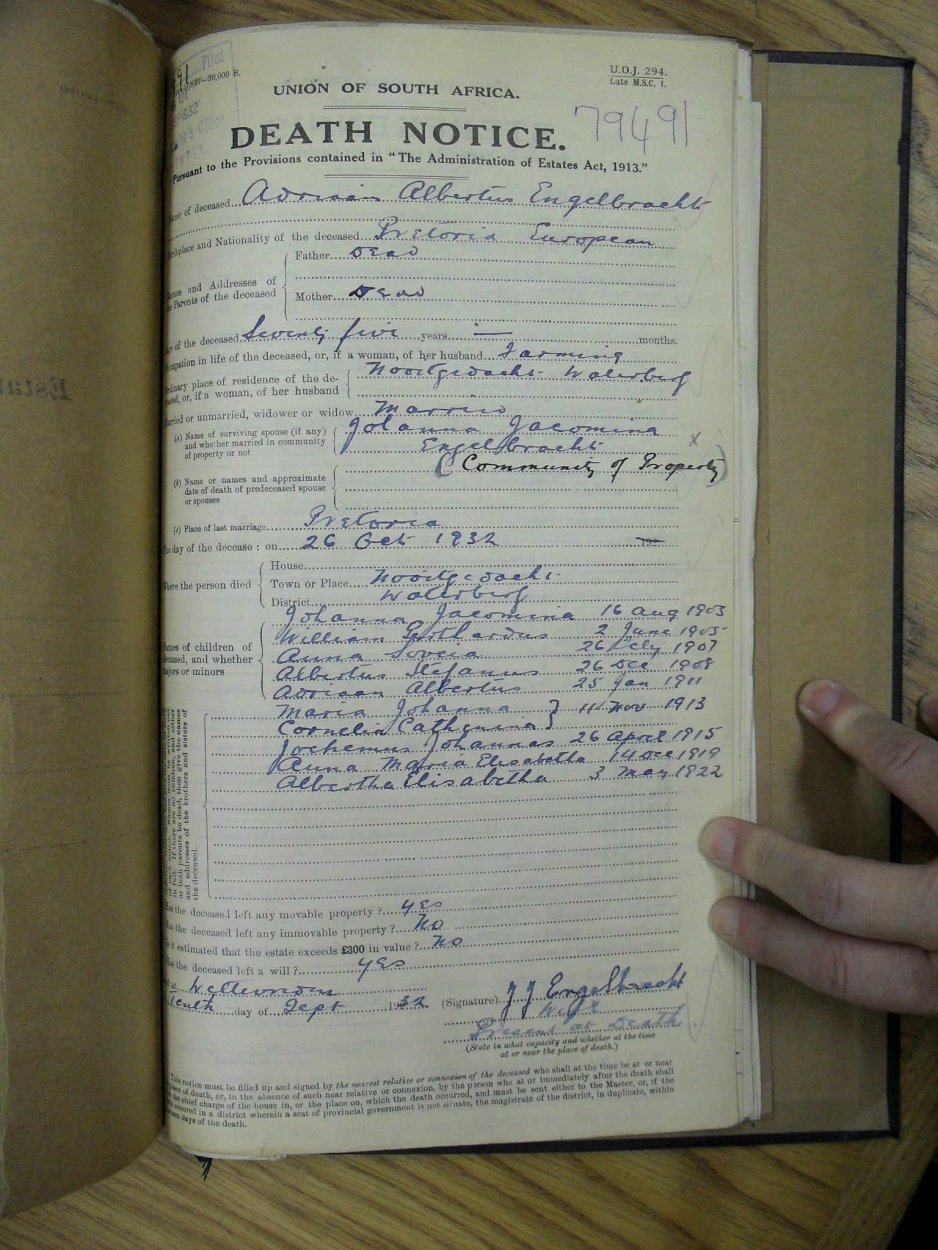 Filed
—30,000 S.
1932
U.D.J. 294.
Late M.S.C. 1.
UNION OF SOUTH AFRICA.
79491
DEATH NOTICE.
Pursuant to the Provisions contained in "The Administration of Estates Act, 1913."
Name of deceased Adriaan Albertus Engelbracht
Birthplace and Nationality of the deceased Pretoria European
Names and Addresses of the Parents of the deceased
Father Dead
Mother Dead
Age of the deceased Seventy five years — months.
Occupation in life of the deceased, or, if a woman, of her husband Farming
Ordinary place of residence of the deceased, or, if a woman, of her husband Nooitgedacht Waterberg
Married or unmarried, widower or widow Married
(a) Name of surviving spouse (if any) and whether married in community of property or not
Johanna Jacomina
Engelbracht x
(Community of Property)
(b) Name or names and approximate date of death of predeceased spouse or spouses
(c) Place of last marriage Pretoria
The day of the decease : on 26 Oct 1932 192
Where the person died
House
Town or Place Nooitgedacht
District Waterberg
Names of children of deceased, and whether majors or minors
Johanna Jacomina 16 Aug 1903
William 2 June 1905
Anna 26 July 1907
Albertus Stefanus 26 Dec 1908
Adriaan Albertus 25 Jan 1911
Maria Johanna } 11 Nov 1913
Cornelia Catherina
Jochemus Johannes 26 April 1915
Anna Maria Elisabetha 14 Dec 1919
Albertha Elisabetha 3 May 1922
and addresses of the brothers and sisters of the deceased.
Has the deceased left any movable property ? yes
Has the deceased left any immovable property ? No
Is it estimated that the estate exceeds £300 in value ? No
Has the deceased left a will ? yes
at
tenth day of Sept 1932
(Signature) J J Engelbracht
Wife
Present at Death
(State in what capacity and whether at the time at or near the place of death.)
This notice must be filled up and signed by the nearest relative or connexion of the deceased who shall at the time be at or near
place of death, or, in the absence of such near relative or connexion, by the person who at or immediately after the death shall
the chief charge of the house in, or the place on, which the death occurred, and must be sent either to the Master, or, if the
occurred in a district wherein a seat of provincial government is not situate, the magistrate of the district, in duplicate, within
days of the death.